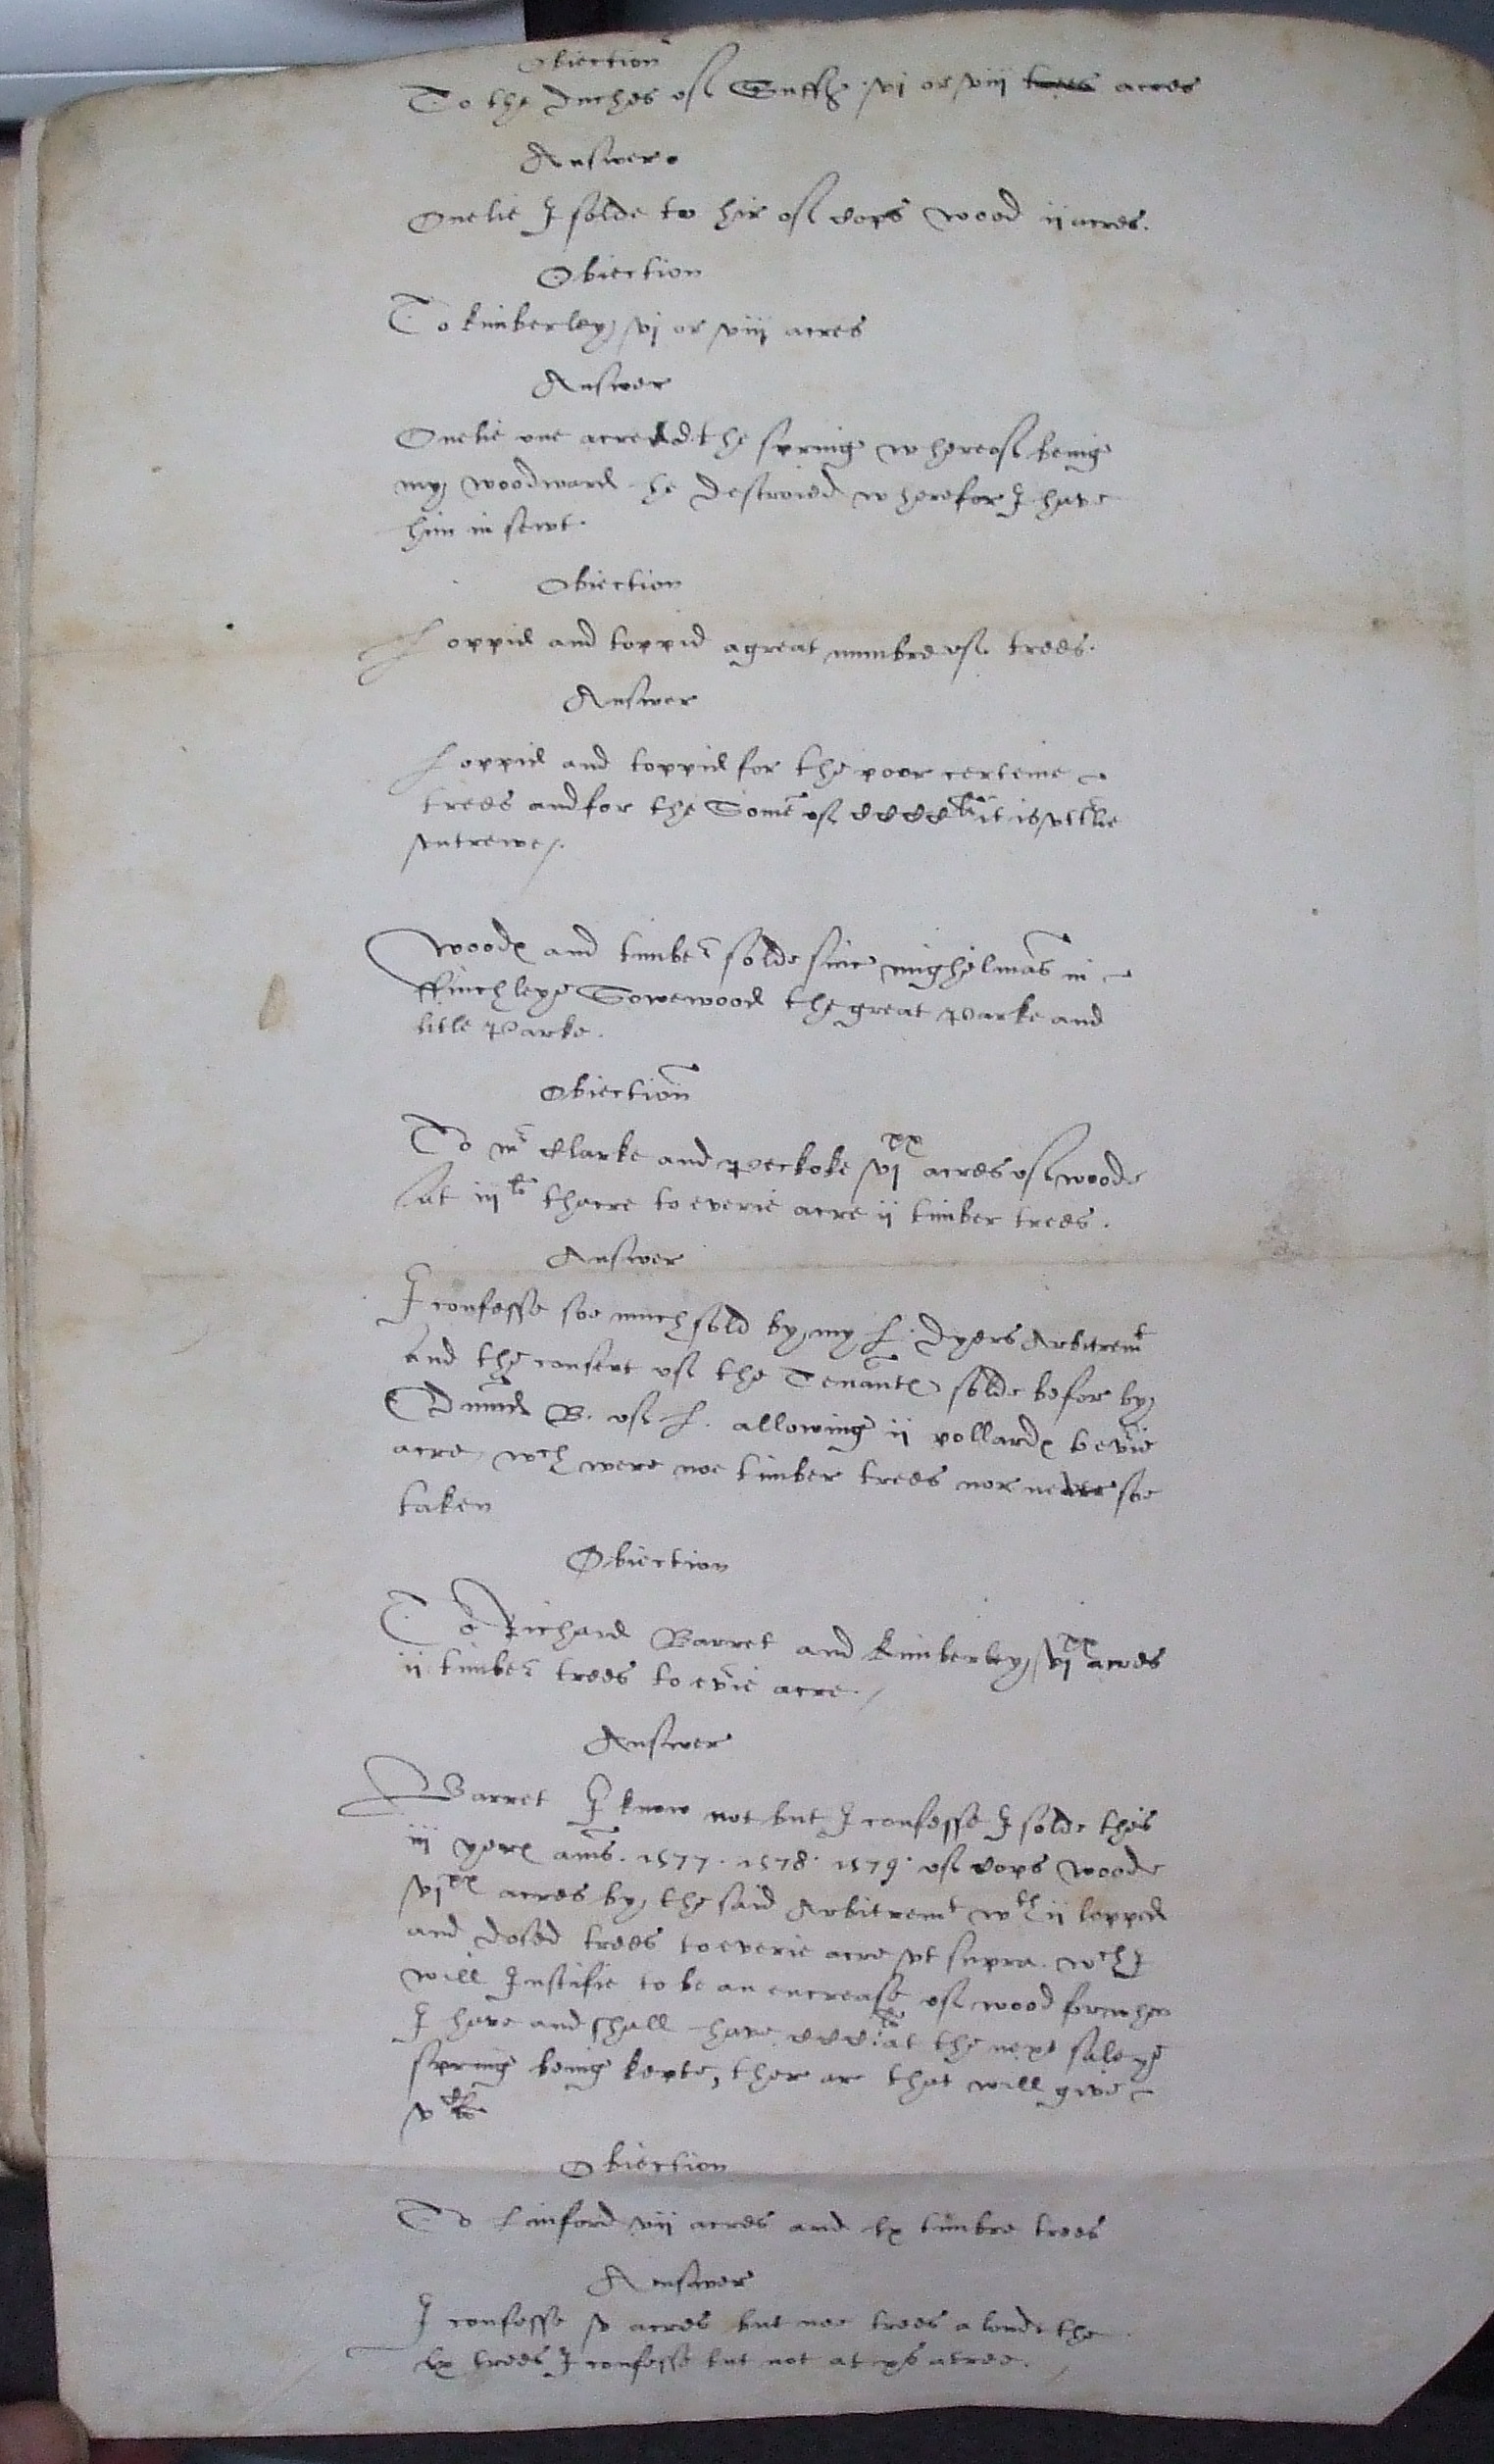 Obiection
To the Duches of Suff. vi or viii trees acres
Answer.
Onelie I solde to hir of cops wood ii acres.
Obiection
To kimberley vi or viii acres
Answer
Onelie one acre the spring whereof being
my woodward he destroied wherefor I have
him in sewt.
Obiection
Loppid and toppid a great numbre of trees.
Answer
Loppid and toppid for the poor certeine
trees and for the Some of cccc li it is vtterlie
vntrewe.
Woodes and timber solde since mighelmas in
ffinchleye Sowewood the great Parke and
litle Parke.
Obiection
To mr Clarke and Peckoke vi xx acres of woode
at iii li thacre to everie acre ii timber trees.
Answer
I confesse soe much sold by my L. Dyers Arbitremt
and the consent of the Tenantes solde befor by
Edmund B. of L. allowing ii pollardes to evrie
acre wch were noe timber trees nor never soe
taken
Obiection
To Richard Barret and kimberley vi xx acres
ii timber trees to evrie acre.
Answer
Barret I know not but I confesse I solde thes
iii yeres annis. 1577. 1578. 1579. of cops woode
vi xx acres by the said Arbitremt wth ii loppid
and doted trees to everie acre vt supra. wch I
will Justifie to be an encrease of wood for wher
I have and shall have ccc li at the next sale ye
spring being kepte, ther ar that will give
v c li
Obiection
To Linford vii acres and lx timbre trees
Answer
I confesse v acres but noe trees a lond the
lx trees I confesse but not at xs a tree.